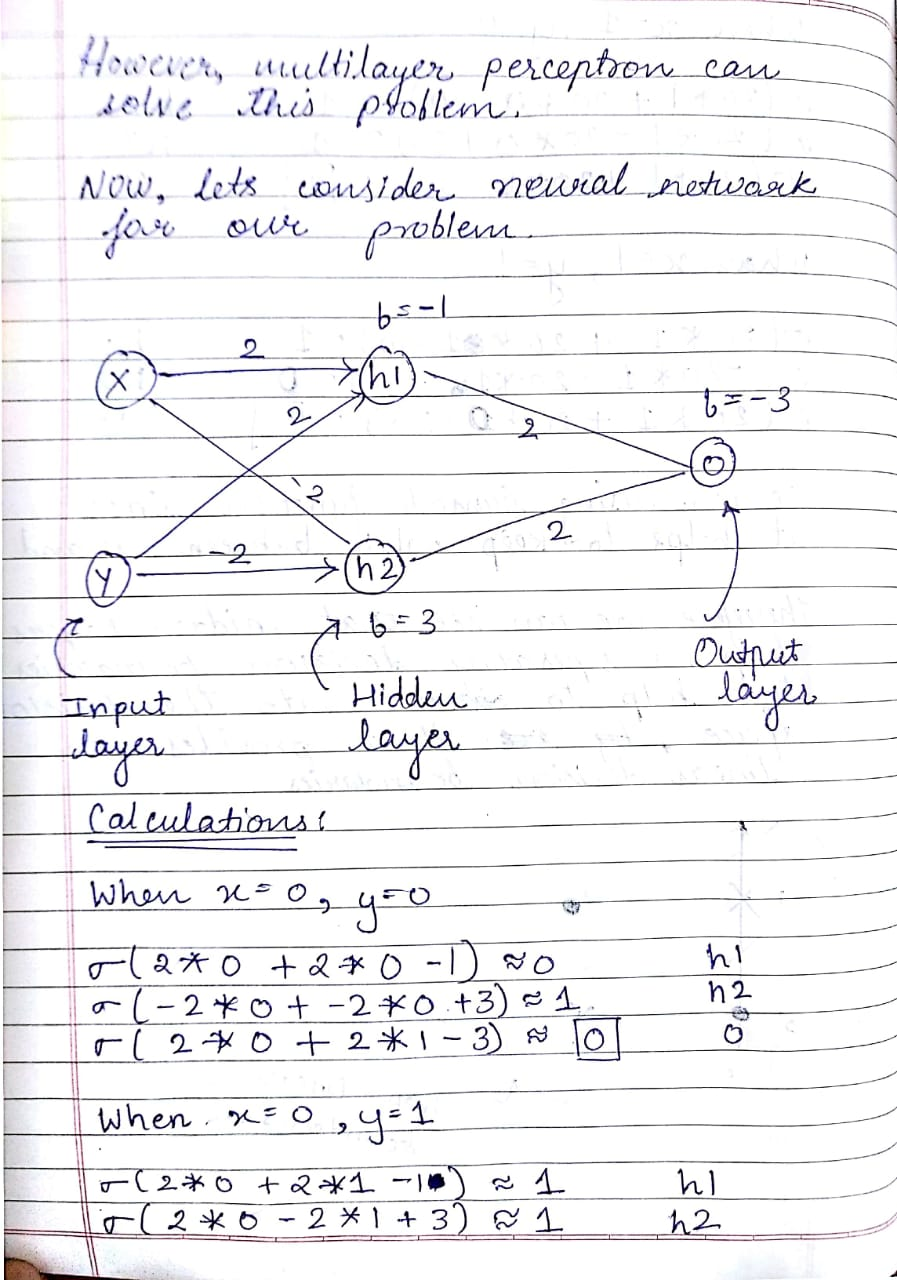 However, multilayer perceptron can
solve this problem.
Now, lets consider neural network
for our problem.
b=-1
2
X
h1
2
b=-3
2
O
-2
2
-2
Y
h2
b=3
Input
layer
Hidden
layer
Output
layer
Calculations:
When x=0, y=0
σ(2*0 + 2*0 -1) ≈0 h1
σ(-2*0 + -2*0 +3) ≈ 1 h2
σ( 2*0 + 2*1-3) ≈ 0 O
When x=0, y=1
σ(2*0 + 2*1 -1) ≈ 1 h1
σ( 2*0 - 2*1+3) ≈ 1 h2